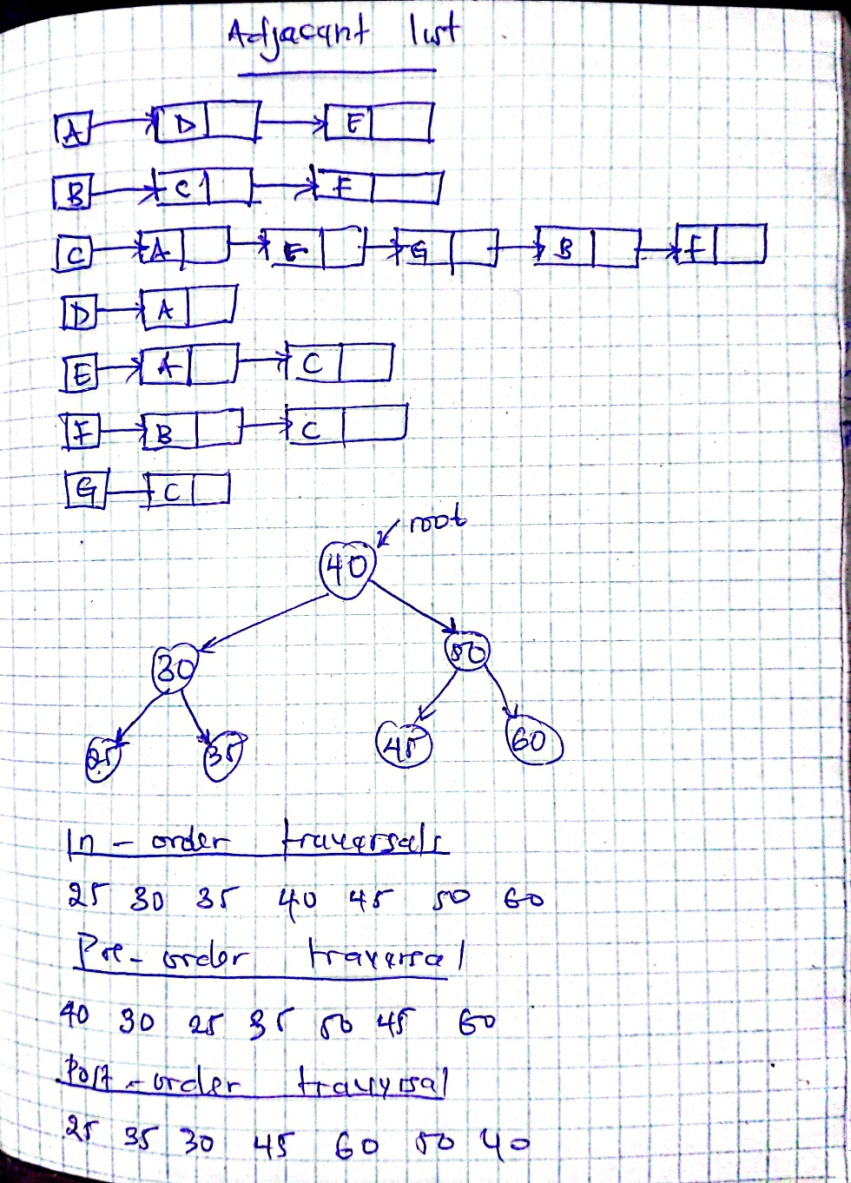 Adjacant list
A D E
B C F
C A E G B F
D A
E A C
F B C
G C
root
40
30 50
25 35 45 60
In - order traversals
25 30 35 40 45 50 60
Pre - order traversal
40 30 25 35 50 45 60
Post - order traversal
25 35 30 45 60 50 40